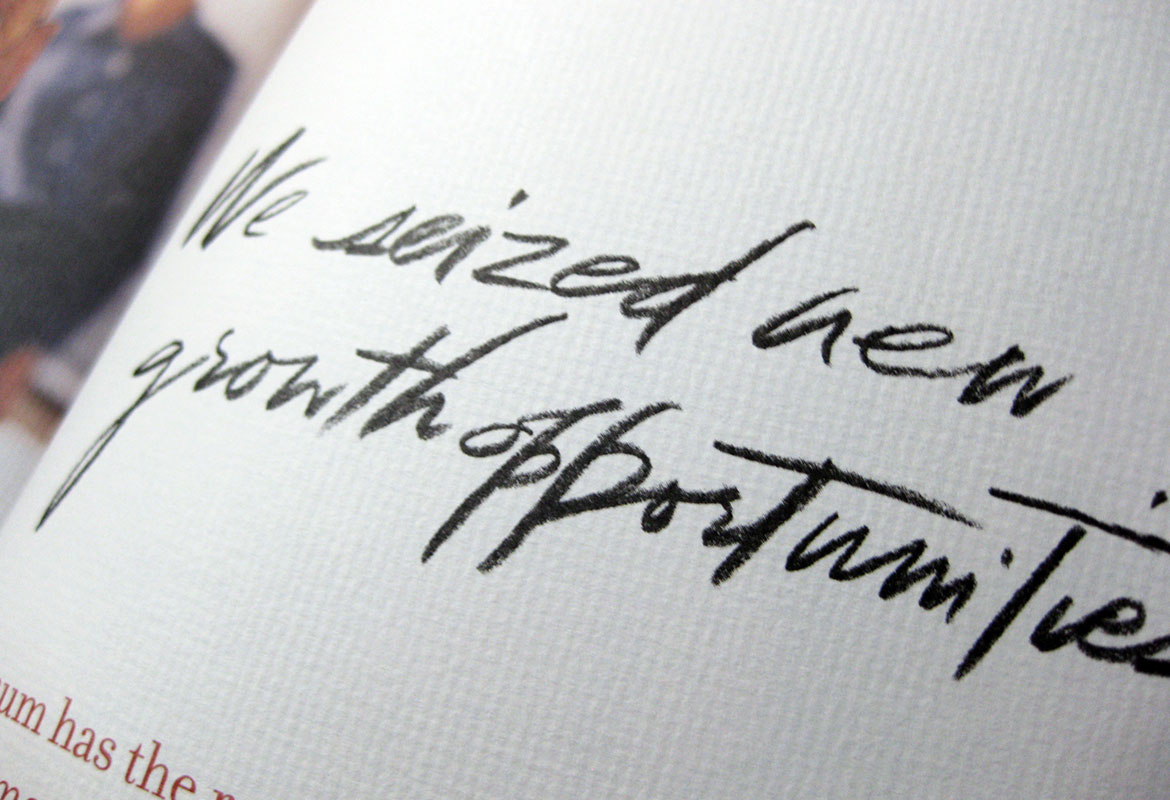 We seized new
growth opportunities
has the